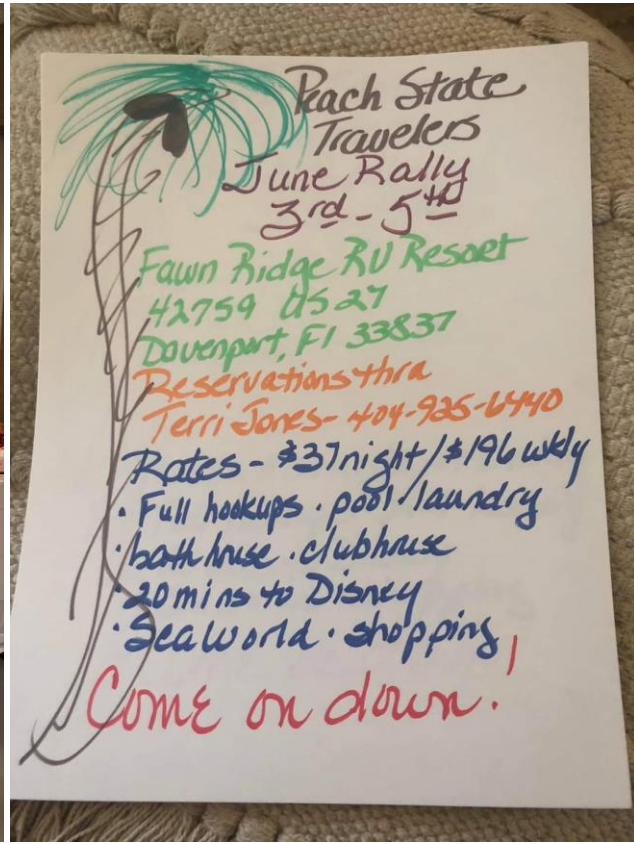 Peach State
Travelers
June Rally
3rd - 5th
Fawn Ridge RV Resort
42759 US 27
Davenport, Fl 33837
Reservations thru
Terri Jones - 404-925-6440
Rates - $37 night/$196 wkly
· Full hookups · pool · laundry
· bath house · clubhouse
· 20 mins to Disney
· Seaworld · shopping
Come on down!!